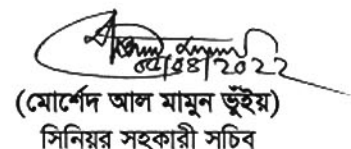 04/04/2022
(মোর্শেদ আল মামুন ভূঁইয়া)
সিনিয়র সহকারী সচিব